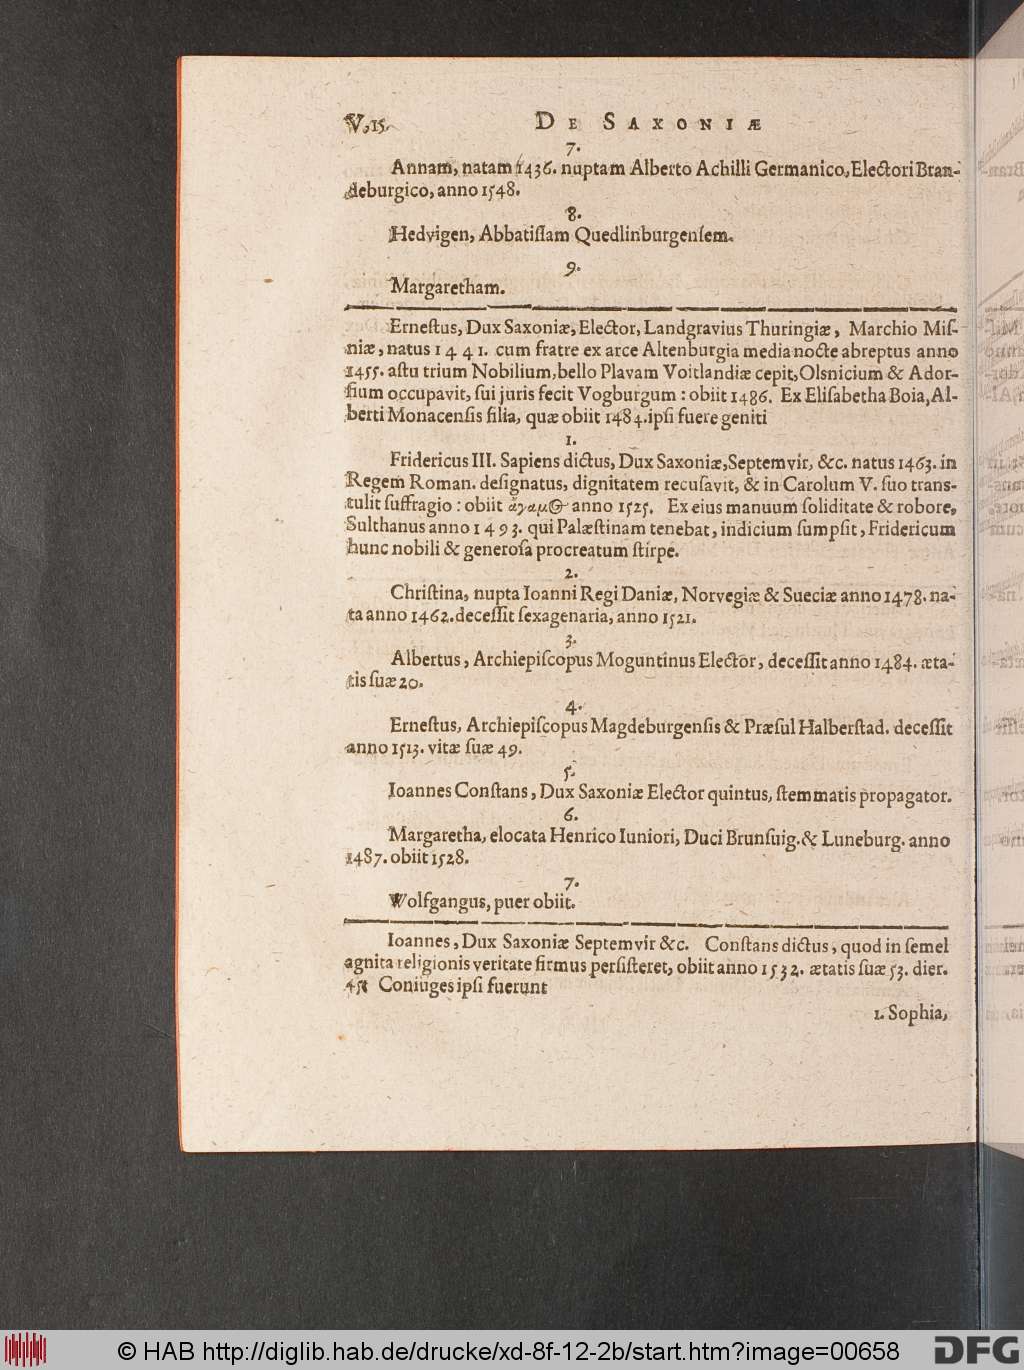 V. 15. DE SAXONIÆ
7.
Annam, natam 1436. nuptam Alberto Achilli Germanico, Electori Bran-
deburgico, anno 1548.
8.
Hedvigen, Abbatiſſam Quedlinburgenſem.
9.
Margaretham.
Erneſtus, Dux Saxoniæ, Elector, Landgravius Thuringiæ, Marchio Miſ-
niæ, natus 1441. cum fratre ex arce Altenburgia media nocte abreptus anno
1455. aſtu trium Nobilium, bello Plavam Voitlandiæ cepit, Olsnicium & Ador-
fium occupavit, ſui juris fecit Vogburgum : obiit 1486. Ex Eliſabetha Boia, Al-
berti Monacenſis filia, quæ obiit 1484. ipſi fuere geniti
1.
Fridericus III. Sapiens dictus, Dux Saxoniæ, Septemvir, &c. natus 1463. in
Regem Roman. deſignatus, dignitatem recuſavit, & in Carolum V. ſuo trans-
tulit ſuffragio : obiit ἄγαμος anno 1525. Ex eius manuum ſoliditate & robore,
Sulthanus anno 1493. qui Palæſtinam tenebat, indicium ſumpſit, Fridericum
hunc nobili & generoſa procreatum ſtirpe.
2.
Chriſtina, nupta Ioanni Regi Daniæ, Norvegiæ & Sueciæ anno 1478. na-
ta anno 1462. deceſſit ſexagenaria, anno 1521.
3.
Albertus, Archiepiſcopus Moguntinus Elector, deceſſit anno 1484. æta-
tis ſuæ 20.
4.
Erneſtus, Archiepiſcopus Magdeburgenſis & Præſul Halberſtad. deceſſit
anno 1513. vitæ ſuæ 49.
5.
Ioannes Conſtans, Dux Saxoniæ Elector quintus, ſtemmatis propagator.
6.
Margaretha, elocata Henrico Iuniori, Duci Brunſuig. & Luneburg. anno
1487. obiit 1528.
7.
Wolfgangus, puer obiit.
Ioannes, Dux Saxoniæ Septemvir &c. Conſtans dictus, quod in ſemel
agnita religionis veritate firmus perſiſteret, obiit anno 1532. ætatis ſuæ 53. dier.
45. Coniuges ipſi fuerunt
1. Sophia,
© HAB http://diglib.hab.de/drucke/xd-8f-12-2b/start.htm?image=00658
DFG